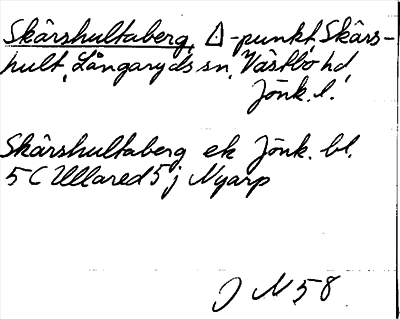 Skårshultaberg, △-punkt, Skårs-
hult, Långaryds sn, Västbo hd,
Jönk. l.
Skårshultaberg ek Jönk. bl.
5 C Ullared 5 j Nyarp
J N 58